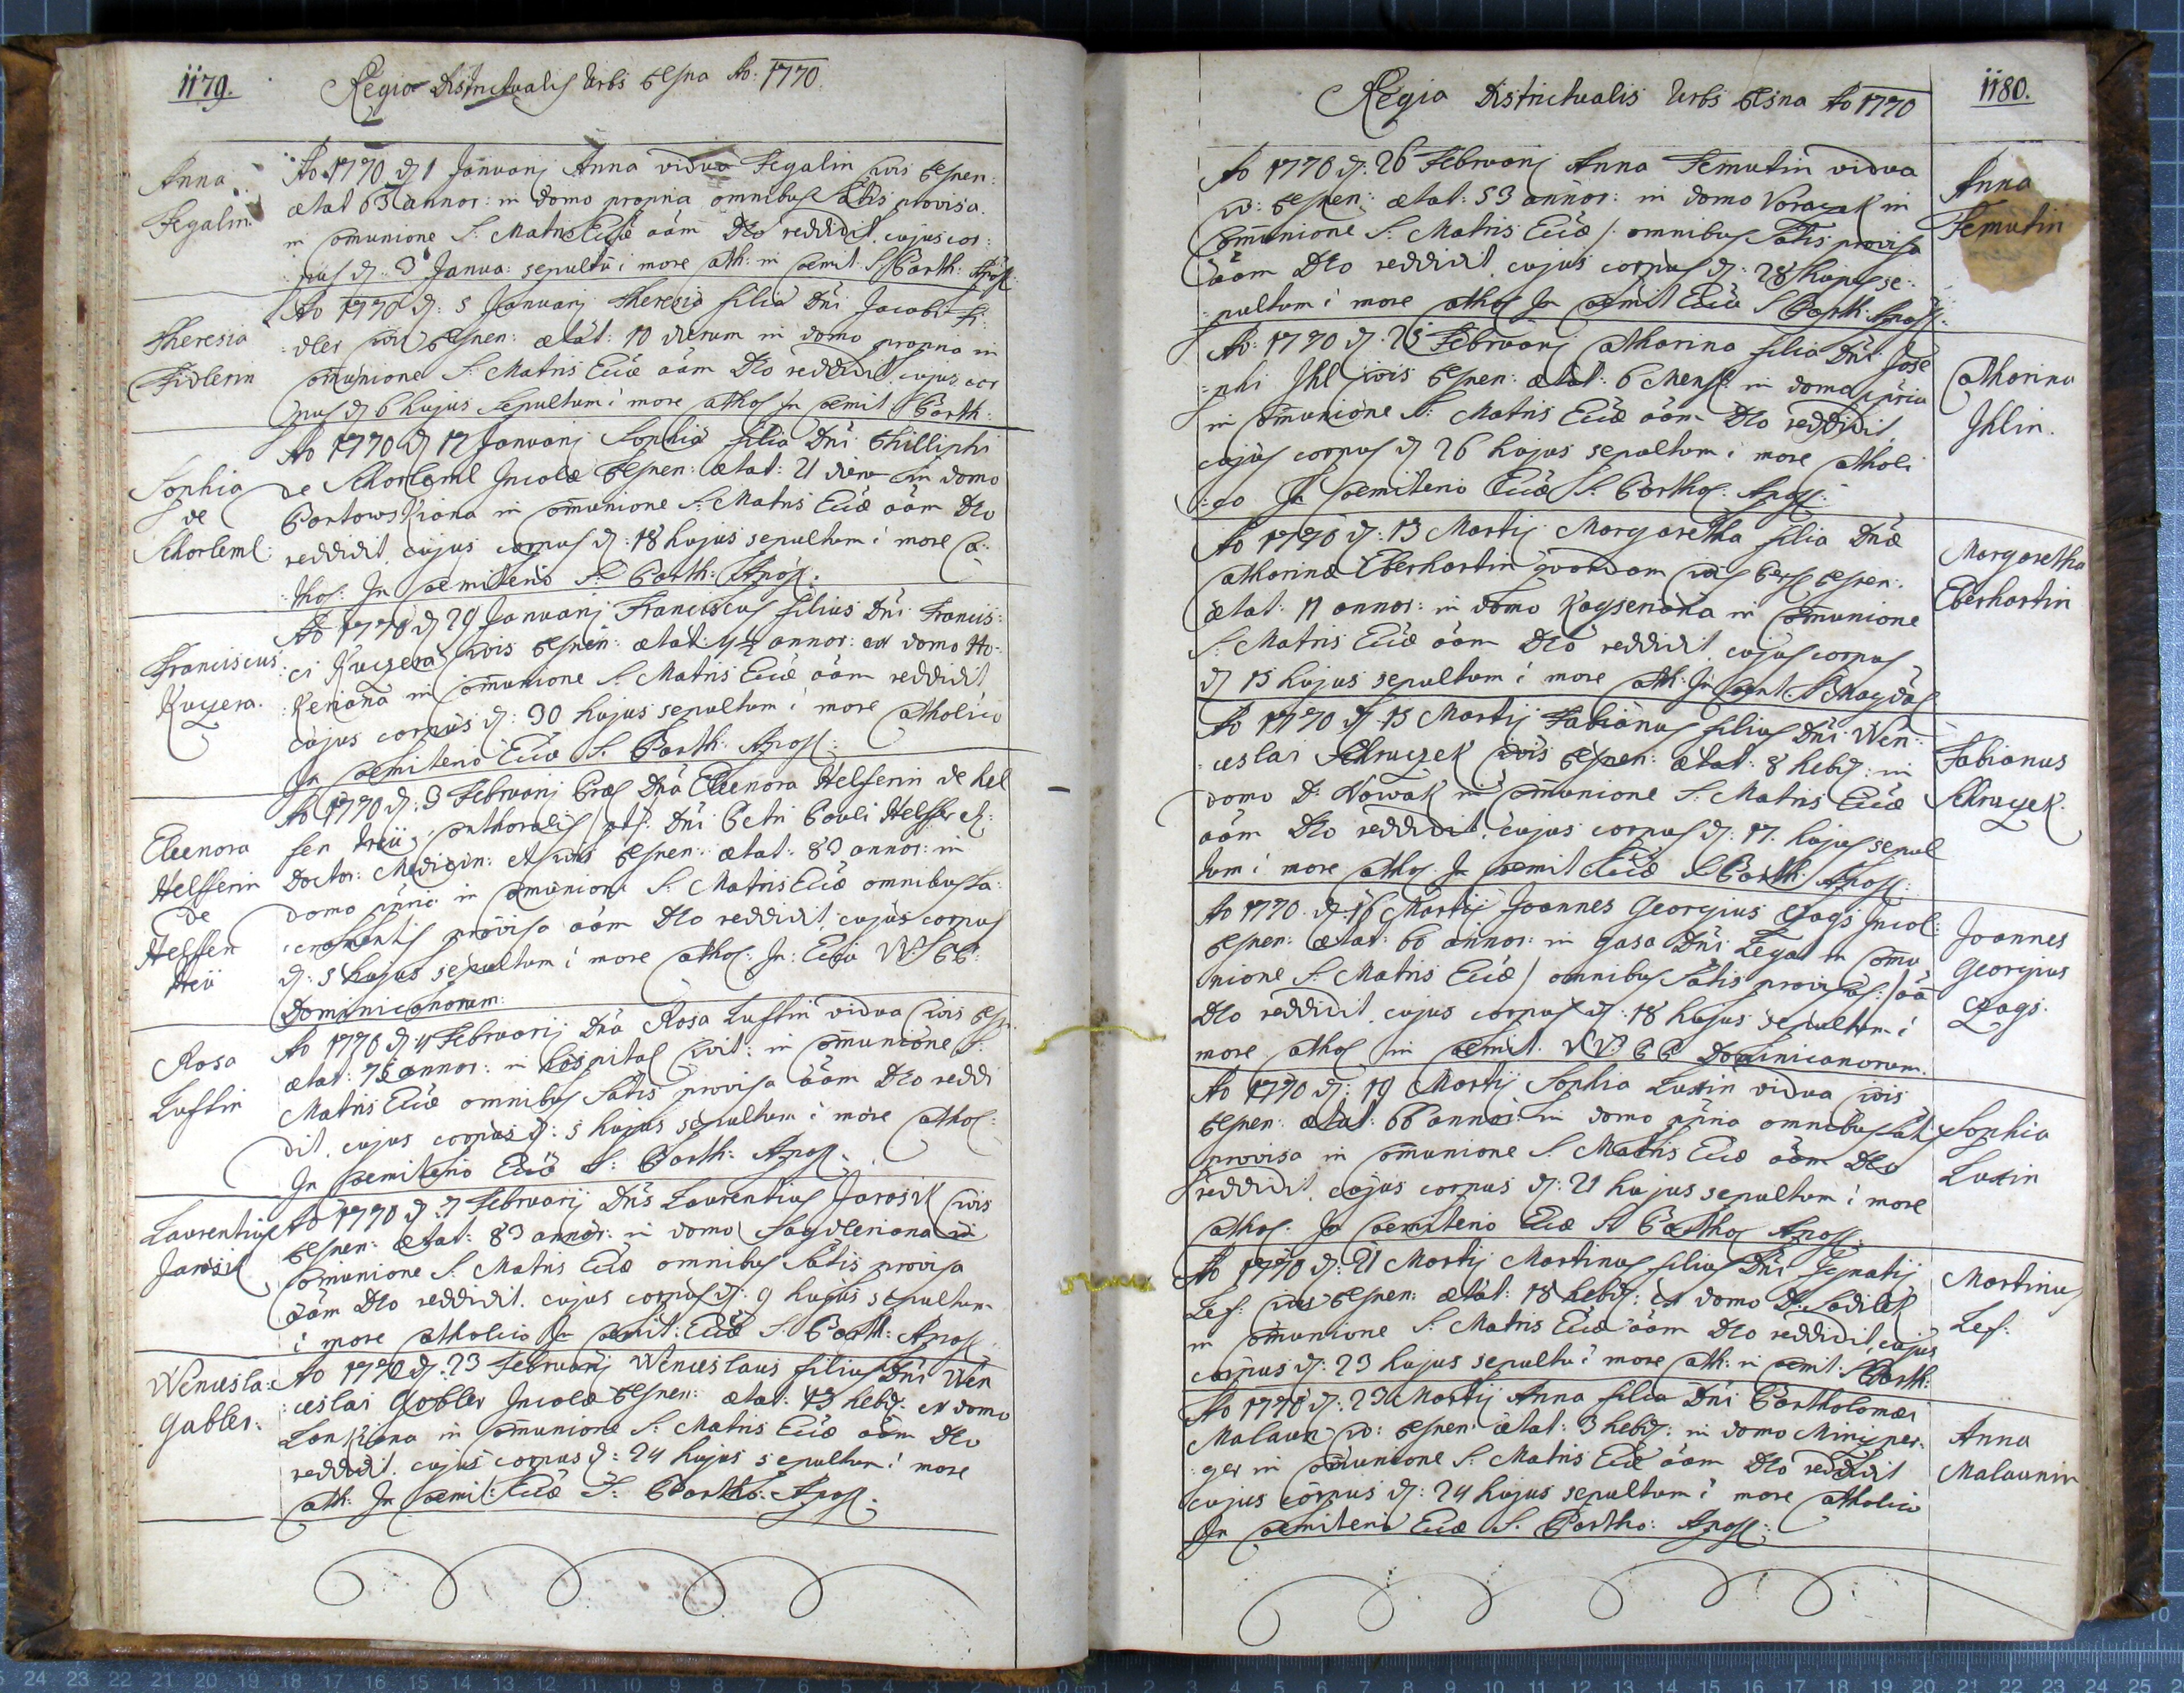 1179.
Regio Districtualis Urbs Pelsna Ao: 1770.
Anna
Fegalin
Ao 1770 d 1 Januarij Anna vidua Fegalin civis Pelsnen:
ætat 63 annor: in domo propria omnibus Satis provisa.
in comunione S: Matris Eccæ aam Deo reddidit. cujus cor:
pus d: 3 Janua: sepultu i more cath: in coemit: S Barth: Apos:
Theresia
Fidlerin
Ao 1770 d: 5 Januarij Theresia filia Dni Jacobi Fi:
:dler civis Pelsnen: ætat: 10 dierum in domo propria in
comunione S: Matris Eccæ aam Deo reddidit. cujus cor
pus d 6 hujus sepultum i more cathol In coemit: S Barth:
Sophia
de
Schorleml:
Ao 1770 d 17 Januarij Sophia filia Dni Phillipi
de Schorleml Incolæ Pelsnen: ætat: 21 dieru in domo
Bortowskiana in comunione S: Matris Eccæ aam Deo
reddidit, cujus corpus d: 18 hujus sepultum i more ca:
:thol. In coemiterio S: Barth: Apos:
Franciscus
Kuczera.
Ao 1770 d 29 Januarij Franciscus filius Dni Francis:
ci Kuczera civis Pelsnen: ætat: 4½ annor: ex domo Ho:
:keriana in comunione S. Matris Eccæ aam reddidit
cujus corpus d: 30 hujus sepultum i more catholico
In coemiterio Eccæ S. Barth: Apos:
Eleenora
Helfferin
de
Helffen
treü
Ao 1770 d: 3 Februarij Præs Dna Eleenora Helferin de hel
fen treü conthoralis Dni Petri Pauli Helffer
Doctor: Medicin: et civis Pelsnen: ætat: 83 annor: in
domo ppria in comunione S. Matris Eccæ omnibus Sa:
:cramentis provisa aam Deo reddidit, cujus corpus
d: 5 hujus sepultum i more cathol: In: Eccia VV: PP:
Dominicanorum:
Rosa
Luftin
Ao 1770 d: 4 Februarij Dna Rosa Luftin vidua civis Pelsn:
ætat: 75 annor: in hospital civit: in comunione S:
Matris Eccæ omnibus Satis provisa aam Deo reddi
dit. cujus corpus d: 5 hujus sepultum i more cathol:
In coemiterio Eccæ S: Barth: Apos:
Laurentius
Jarosik
Ao 1770 d: 7 Februarij Dnus Laurentius Jarosik civis
Pelsnen: ætat: 83 annor: in domo Saydleriana in
comunione S: Matris Eccæ omnibus Satis provisa
aam Deo reddidit. cujus corpus d: 9 hujus sepultum
i more catholico In coemit: Eccæ S: Barth: Apos.
Wenzesla:
Gabler:
Ao 1770 d: 23 Februarij Wenceslaus filius Dni Wen
:ceslai Gobler Incolæ Pelsnen: ætat: 13 hebd: ex domo
Lonkiana in comunione S: Matris Eccæ aam Deo
reddidit. cujus corpus d: 24 hujus sepultum i more
cath: In coemi: Eccæ S: Bartho: Apos:
Regia Districtualis Urbs Pelsna Ao 1770
1180.
Ao 1770 d: 26 Februarij Anna Femutin vidua
civ: Pelsnen: ætat: 53 annor: in domo Voraczek in
comunione S: Matris Eccæ /: omnibus Satis provisa
aam Deo reddidit, cujus corpus d: 28 hujus se:
:pultum i more cathol In coemit Eccæ S Barth: Apos:
Anna
Femutin
Ao: 1770 d: 25 Februarij Catharina filia Dni Jose
:phi Jhl civis Pelsnen: ætat: 6 Mens: in domo ppria
in comunione S: Matris Eccæ aam Deo reddidit
cujus corpus d 26 hujus sepultum i more catholi
:co In coemiterio Eccæ S: Barthol: Apos:
Catharina
Jhlin.
Ao 1770 d: 13 Martij Margaretha filia Dnæ
Catharinæ Eberhartin quondam civis Pelsnen:
ætat: 11 annor: in domo Kayseriana in comunione
S: Matris Eccæ aam Deo reddidit, cujus corpus
d 15 hujus sepultum i more cath: In coemt S Magdal
Margaretha
Eberhartin
Ao 1770 d: 15 Martij Fabianus filius Dni Wen:
:ceslai Schraczek civis Pelsnen: ætat: 8 hebd: in
domo D: Nowak in comunione S: Matris Eccæ
aam Deo reddidit. cujus corpus d: 17. hujus sepul
tum i more cathol In coemit Eccæ S Barth: Apos:
Fabianus
Schraczek.
Ao 1770 d: 16 Martij Joannes Georgius Czags Incol:
Pelsnen: ætat: 60 annor: in gasa Dni Zega in comu
nione S: Matris Eccæ / omnibus Satis provisus: / aa
Deo reddidit, cujus corpus d: 18 hujus sepultum i
more cathol in coemit. VV: PP Dominicanorum.
Joannes
Georgius
Czags.
Ao 1770 d: 19 Martij Sophia Luxin vidua civis
Pelsnen: ætat: 66 annor: in domo ppria omnibus Satis
provisa in comunione S. Matris Eccæ aam Deo
reddidit. cujus corpus d: 21 hujus sepultum i more
cathol: In coemiterio Eccæ S: Barthol Apos:
Sophia
Luxin
Ao 1770 d: 21 Martij Martinus filius Dni Ignatij
Lef: civis Pelsnen: ætat: 18 hebd: ex domo D: Sodilek
in comunione S: Matris Eccæ aam Deo reddidit, cujus
corpus d: 23 hujus sepultu i more cath: in coemit: S Barth:
Martinus
Lef:
Ao 1770 d: 23 Martij Anna filia Dni Bartholomæi
Malaun civ: Pelsnen: ætat: 3 hebd: in domo Minczper:
:ger in comunione S: Matris Eccæ aam Deo reddidit
cujus corpus d: 24 hujus sepultum i more catholico
In coemiterio Eccæ S. Bartho: Apos:
Anna
Malaunin